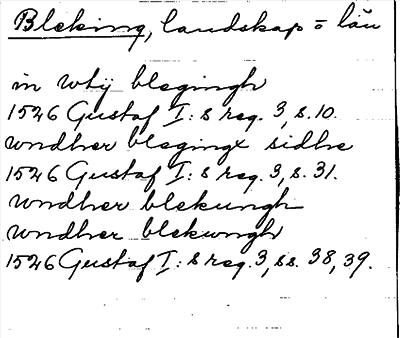 Bleking, landskap o län
in wtÿ blegingh
1526 Gustaf I:s reg. 3, s. 10.
wndher blegingx sidhe
1526 Gustaf I:s reg. 3, s. 31.
wndher blekungh
wndher blekwngh
1526 Gustaf I:s reg. 3, ss. 38, 39.